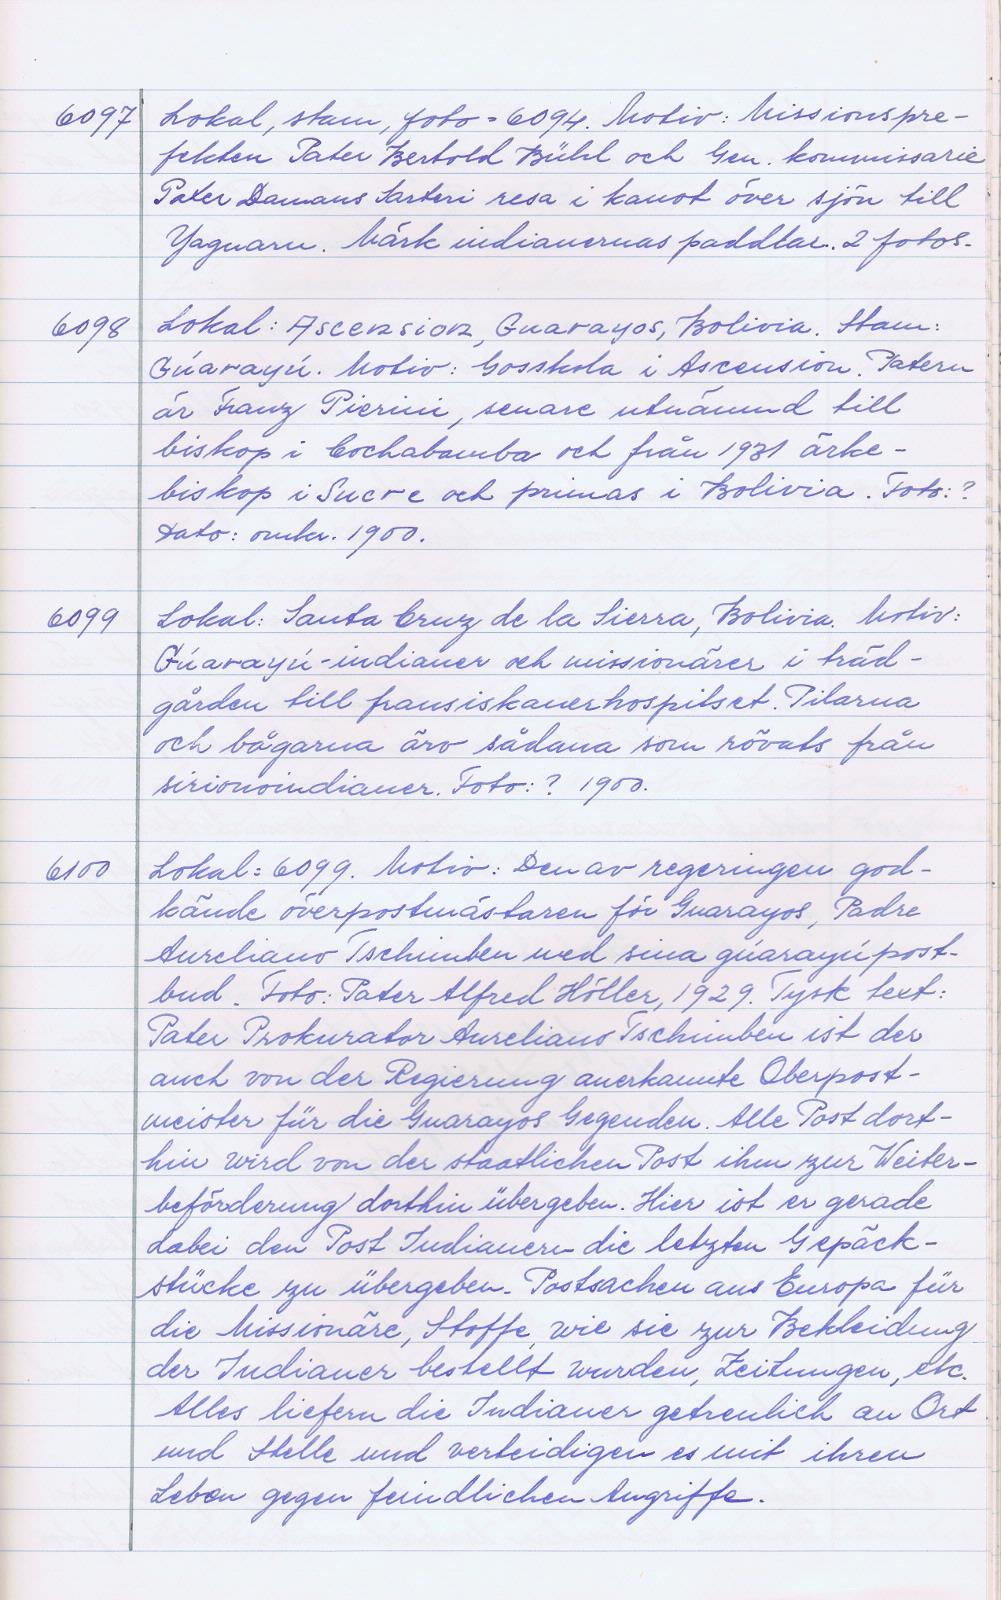 6097 Lokal, stam, foto = 6094. Motiv: Missionspre-
fekten Pater Bertold Bühl och Gen. kommissarie
Pater Damans Sarteri resa i kanot över sjön till
Yaguaru. Märk indianernas paddlar. 2 fotos.
6098 Lokal: Ascension, Guarayos, Bolivia. Stam:
Gúarayú. Motiv: Gosskola i Ascension. Patern
är Franz Pierini, senare utnämnd till
biskop i Cochabamba och från 1931 ärke-
biskop i Sucre och primas i Bolivia. Foto: ?
Dato: omkr. 1900.
6099 Lokal: Santa Cruz de la Sierra, Bolivia. Motiv:
Gúarayú-indianer och missionärer i träd-
gården till fransiskanerhospitset. Pilarna
och bågarna äro sådana som rövats från
sirionoindianer. Foto: ? 1900.
6100 Lokal = 6099. Motiv: Den av regeringen god-
kände överpostmästaren för Guarayos, Padre
Aureliano Tschimben med sina gúarayúpost-
bud. Foto: Pater Alfred Höller, 1929. Tysk text:
Pater Prokurator Aurelians Tschimben ist der
auch von der Regierung anerkannte Oberpost-
meister für die Guarayos Gegenden. Alle Post dort-
hin wird von der staatlichen Post ihm zur Weiter-
beförderung dorthin übergeben. Hier ist er gerade
dabei den Post Indianern die letzten Gepäck-
stücke zu übergeben. Postsachen aus Europa für
die Missionäre, Stoffe, wie sie zur Bekleidung
der Indianer bestellt wurden, Zeitungen, etc.
Alles liefern die Indianer getreulich an Ort
und Stelle und verteidigen es mit ihren
Leben gegen feindlichen Angriffe.